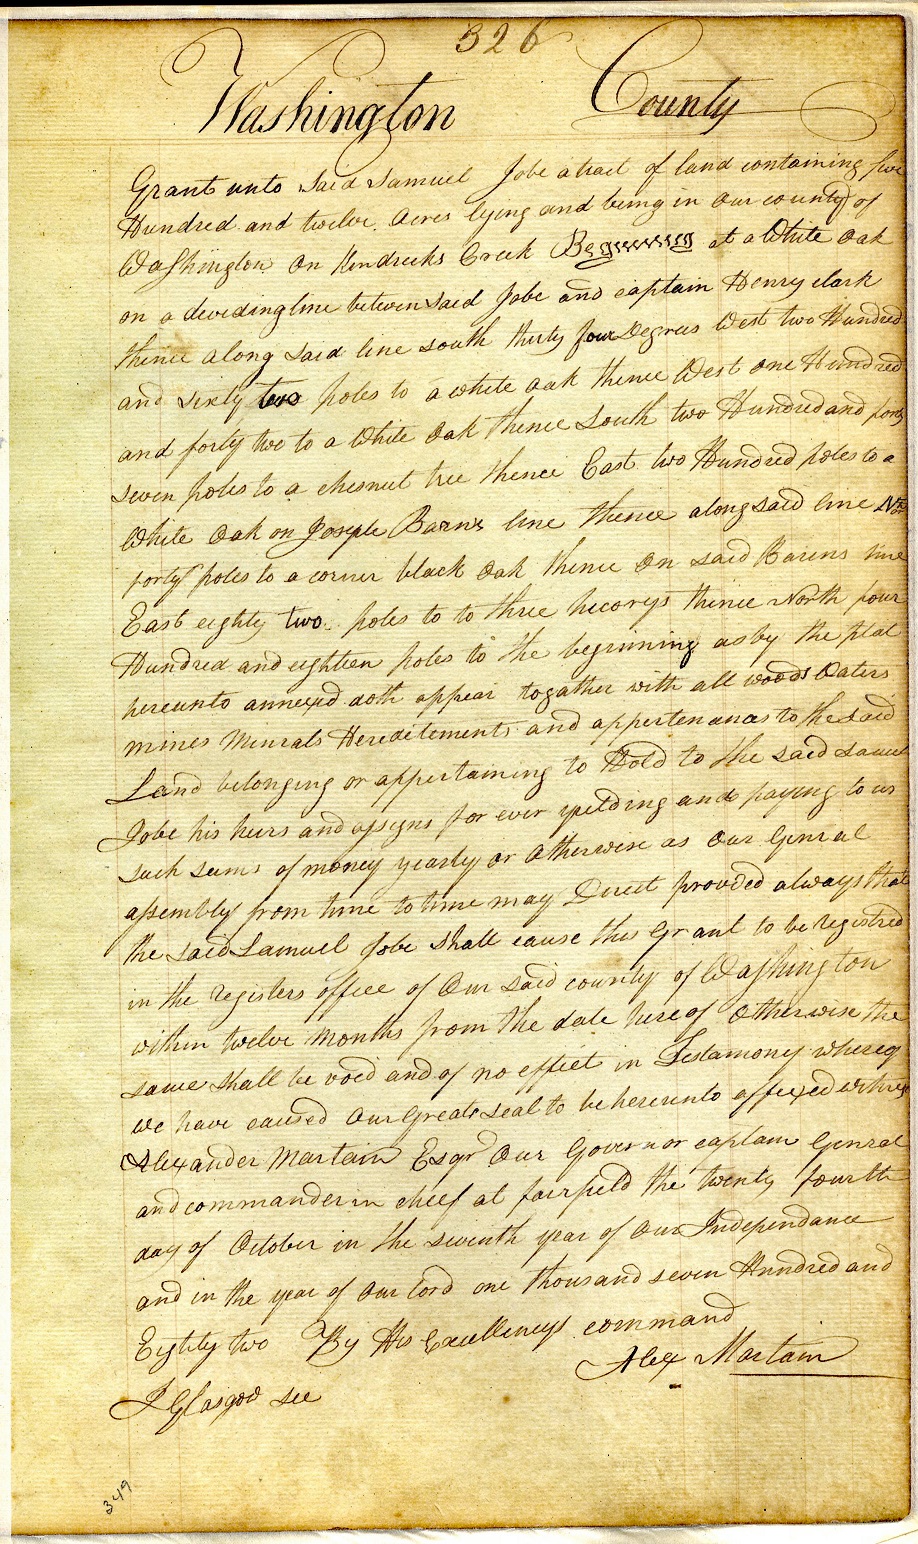 326
Washington County
Grant unto said Samuel Jobe a tract of land containing five
Hundred and twelve Acres lying and being in our county of
Washington on Kendricks Creek Beginning at a White Oak
on a devidingline between said Jobe and captain Henry clark
thence along said line south thirty four Degrees West two Hundred
and sixty two poles to a white oak thence West one Hundred
and forty two to a White Oak thence South two Hundred and forty
seven poles to a chesnut tree thence East two Hundred poles to a
White Oak on Joseph Barns line thence along said line Nor
forty poles to a corner black Oak thence on said Barens line
East eighty two poles to to three hecorys thence North four
Hundred and eighteen poles to the beginning as by the plat
hereunto annexed doth appear togather with all woods Waters
mines Minrals Hereditements and appertenances to the said
Land belonging or appertaining to Hold to the said Samuel
Jobe his heirs and assigns for ever yeilding and paying to us
such sums of money yearly or Otherwise as Our Genral
assembly from time to time may Direct provided always that
the said Samuel Jobe shall cause this Grant to be registred
in the registers office of Our said county of Washington
within twelve Months from the date hereof Otherwise the
same shall be void and of no effect in Testamony whereof
we have caused Our Greate seal to be hereunto affixed witness
Alexander Martain Esqr Our Governor captain Genral
and commander in cheef at fairfield the twenty fourth
day of October in the seventh year of Our Independance
and in the year of Our lord one thousand seven Hundred and
Eighty two By His Excellencys command
Alex Martain
J Glasgow sec
349